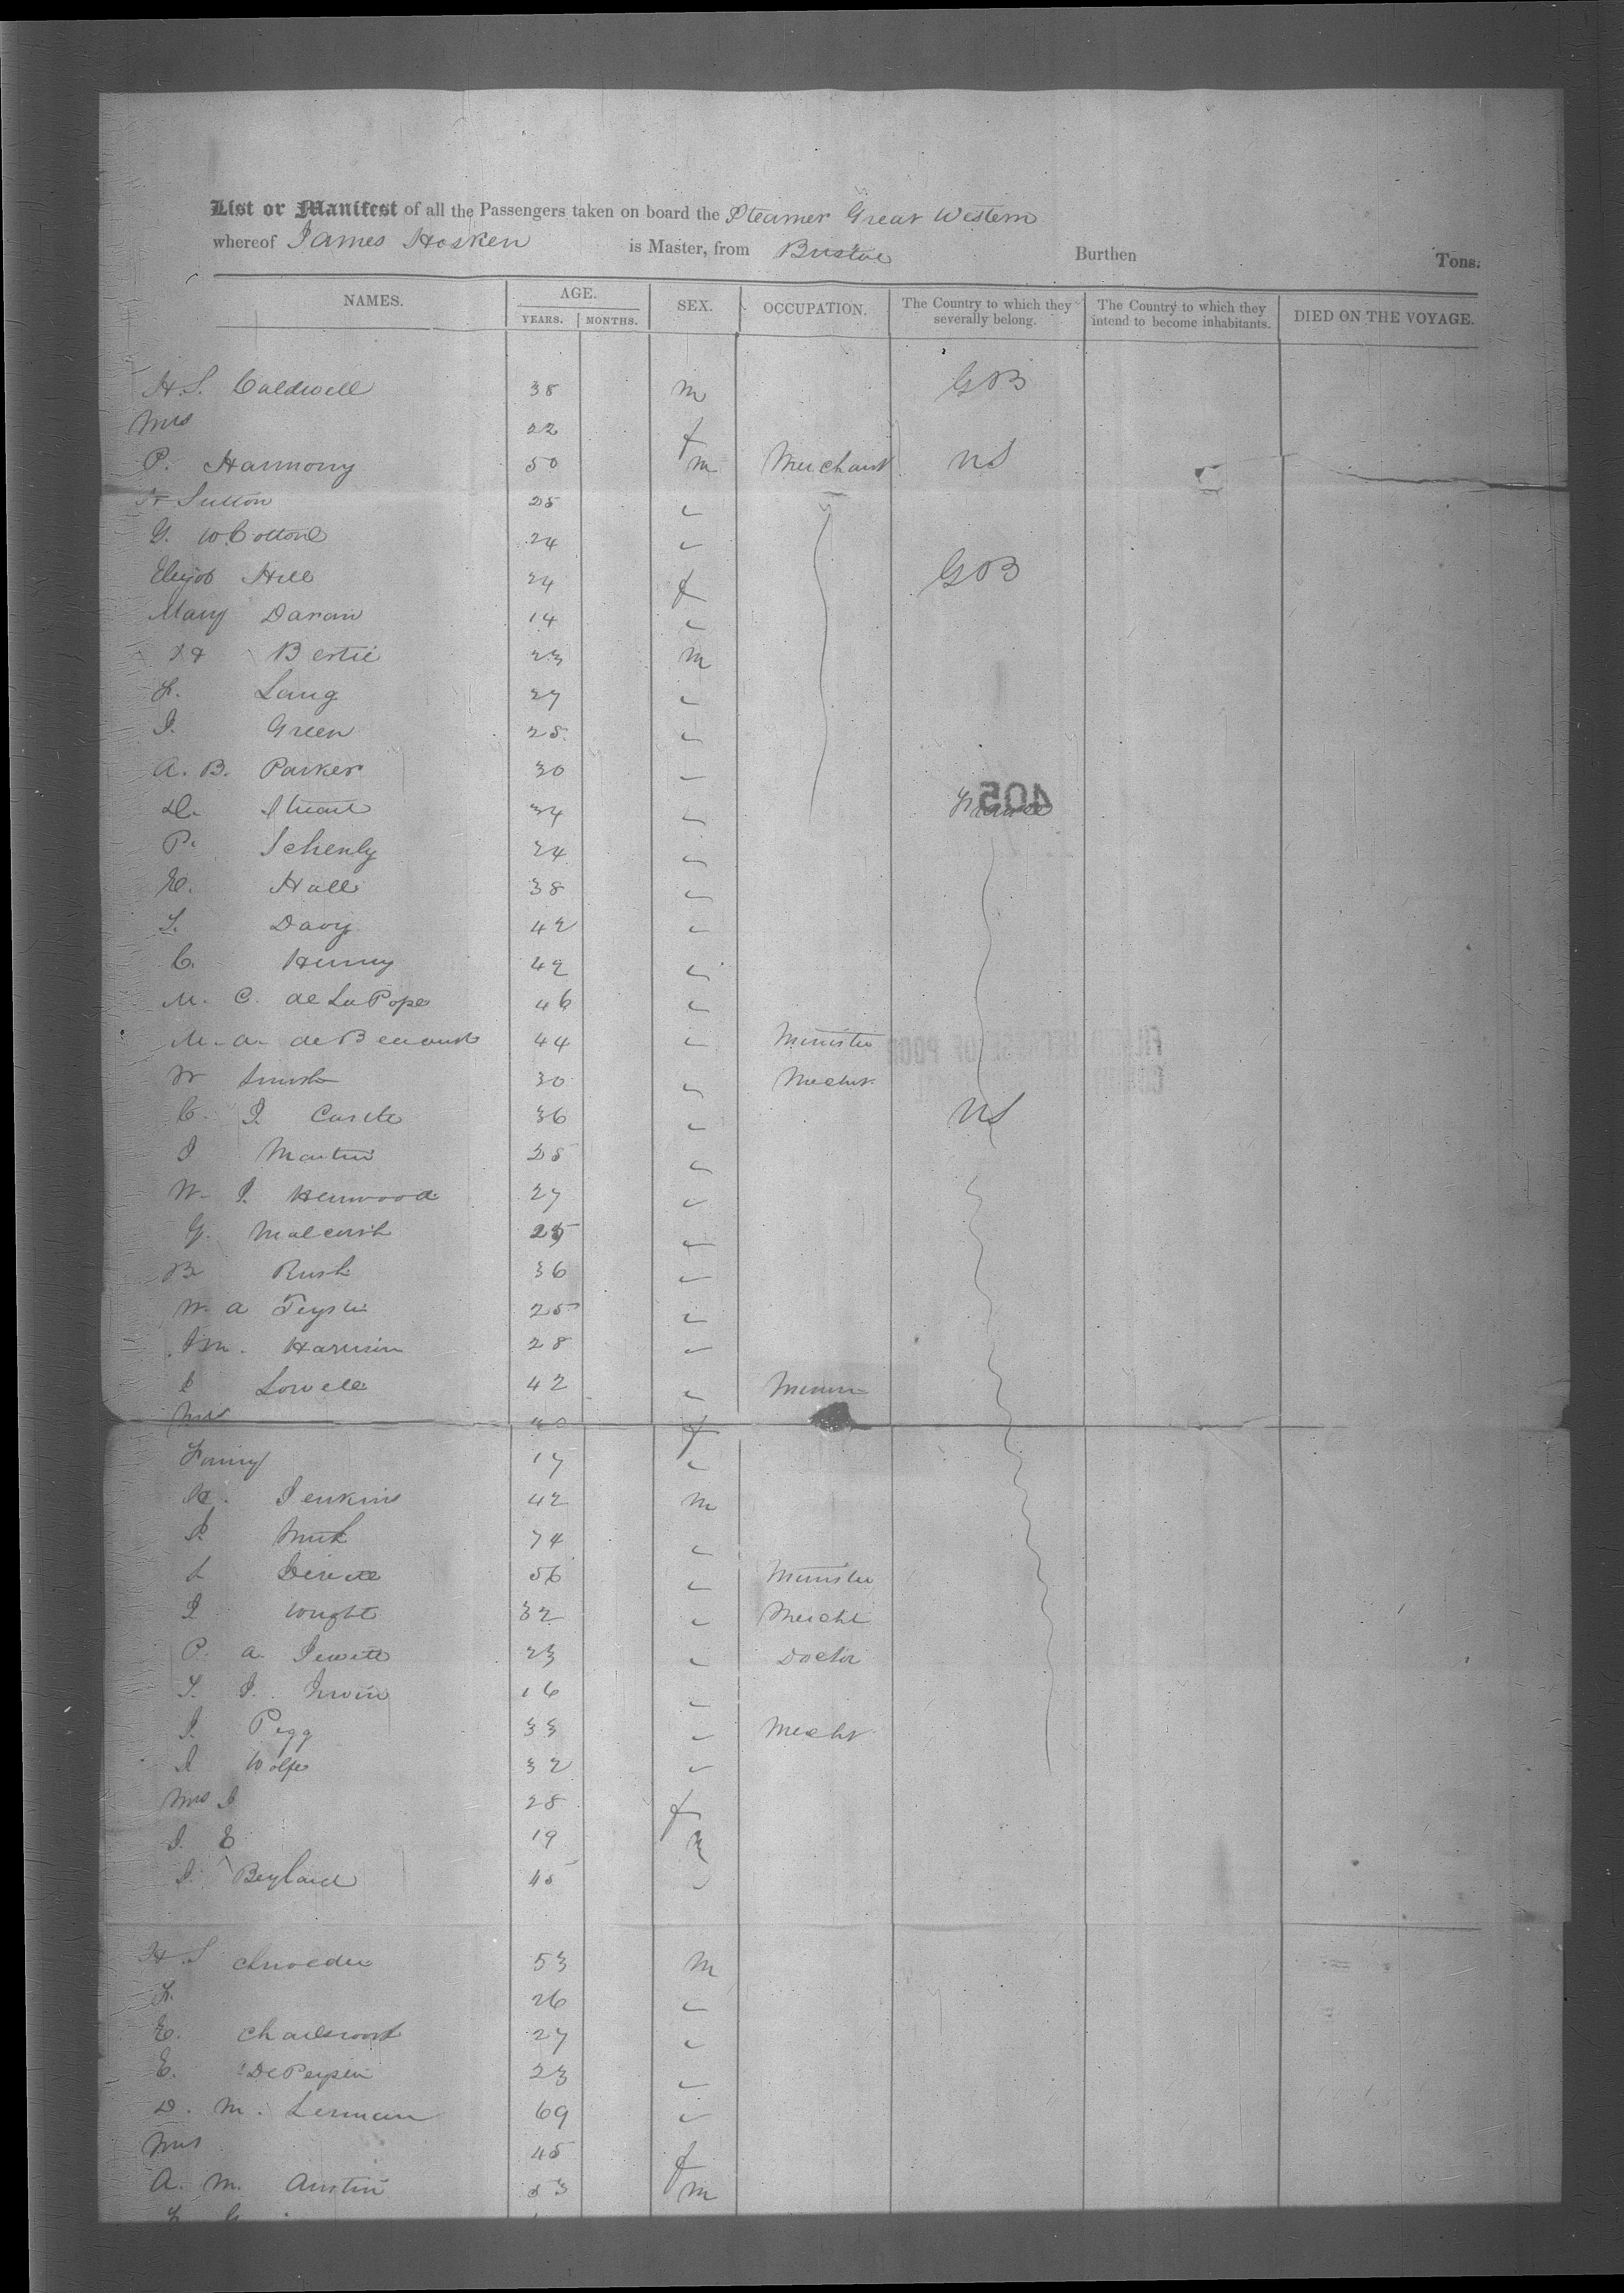 List or Manifest of all the Passengers taken on board the Steamer Great Western
whereof James Hosken is Master, from Bristol Burthen Tons.
NAMES. AGE. YEARS. MONTHS. SEX. OCCUPATION. The Country to which they severally belong. The Country to which they intend to become inhabitants. DIED ON THE VOYAGE.
H. S. Caldwell 38 m GB
Mrs 22 f
P. Harmony 50 m Merchant US
Sutton 25 "
G. W. Cottone 24 "
Hill 24 f GB
Mary Daran 14 "
Bertie 23 m
L. Lang 27 "
J. Green 25 "
A. B. Parker 30 "
D. Stuart 34 " France
405
P. Schenly 24 "
E. Hall 38 "
T. Davy 42 "
C. Henry 42 "
M. C. de La Pope 46 "
M. A. de 44 " Minister
W 30 " Mecht
C. J. Castle 36 " US
J Martin 25 "
W. J. Henwood 27 "
G. 25 "
B Rush 36 "
W. A 25 "
J M. Harrison 28 "
Lowell 42 "
Mrs 40 f
Fanny 17 "
Jenkins 42 m
J. 74 "
56 " Minister
J Wright 32 " Mercht
P. A. Jewett 23 " Doctor
T. J. Irwin 16 "
J. Pegg 33 " Mecht
J Wolfe 32 "
Mrs J 28 f
J. E 19 m
J. Beylard 45 "
H. S 53 m
26 "
E. 27 "
E. De Peyster 23 "
D. M. 69 "
Mrs 45 f
A. M. Austin 53 m